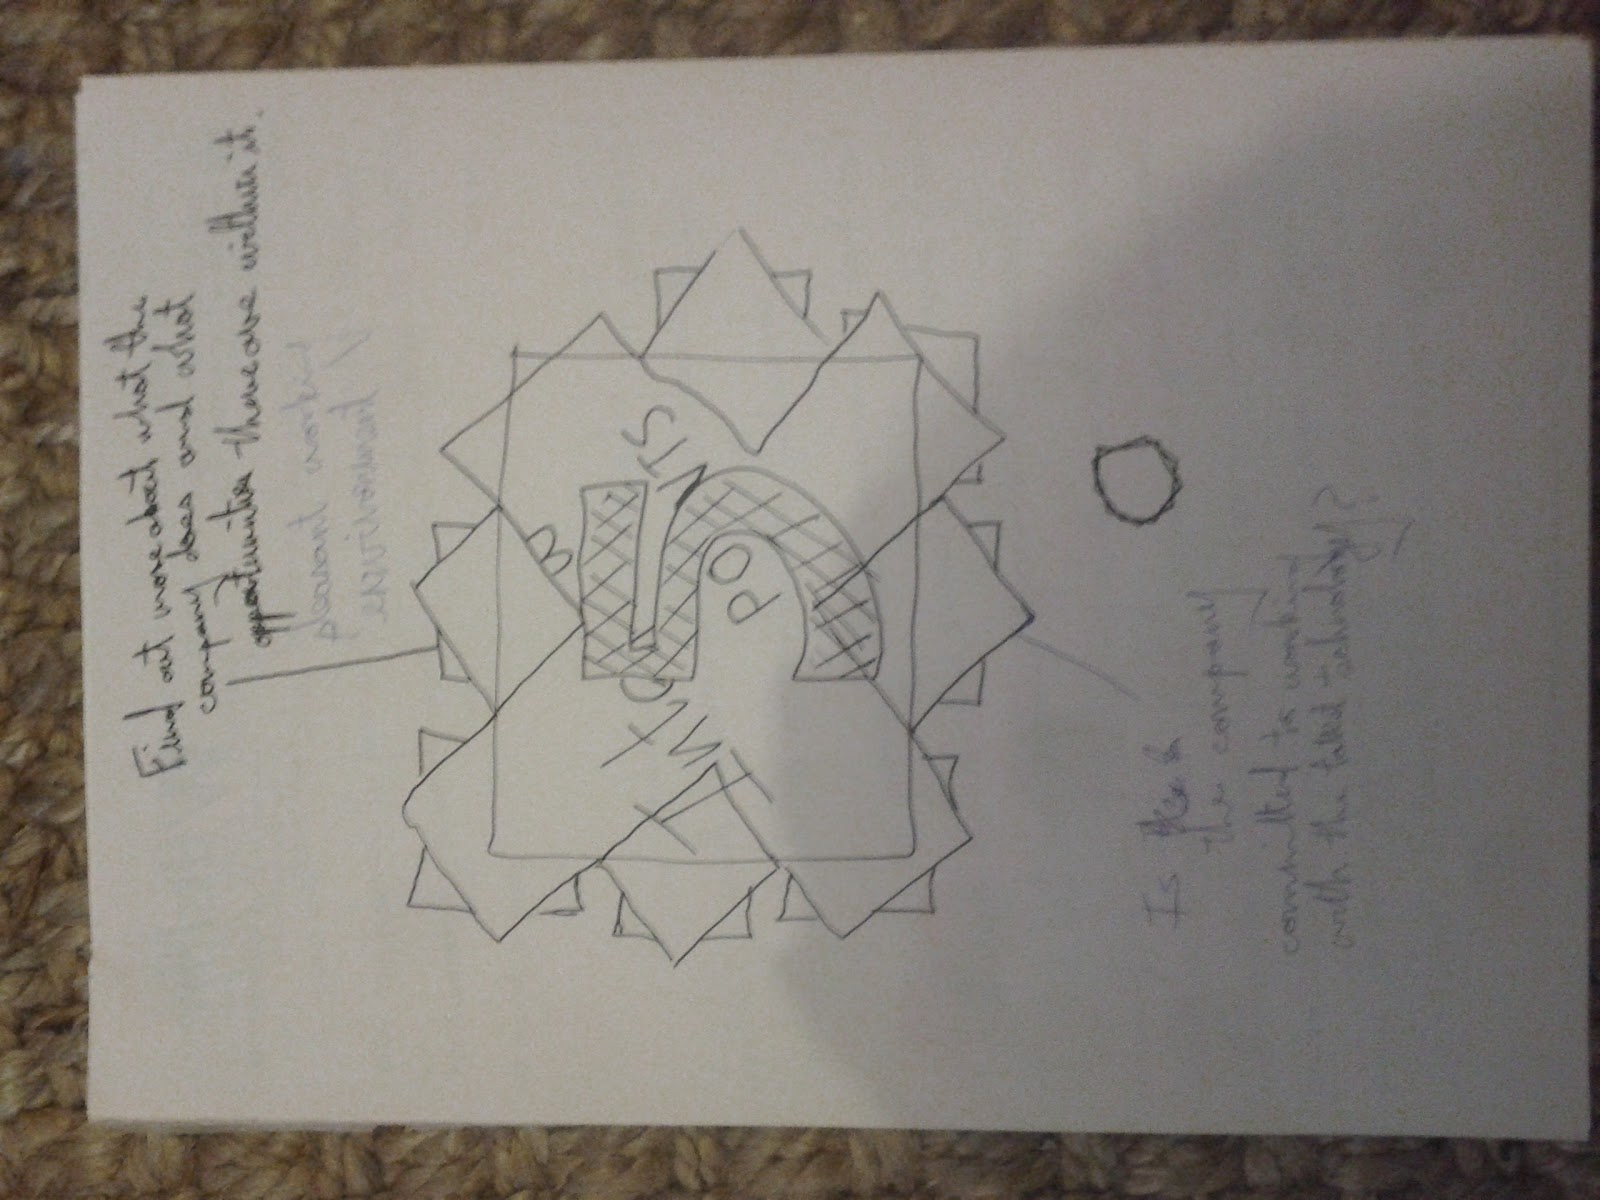 Find out more about what the
company does and what
opportunities there are within it.
pleasant workin
environment
PO
NTS
Is
the company
committed to workin
with the